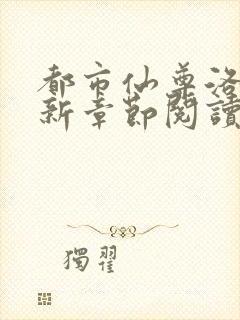 都市仙尊洛
新章節閱讀
獨翟